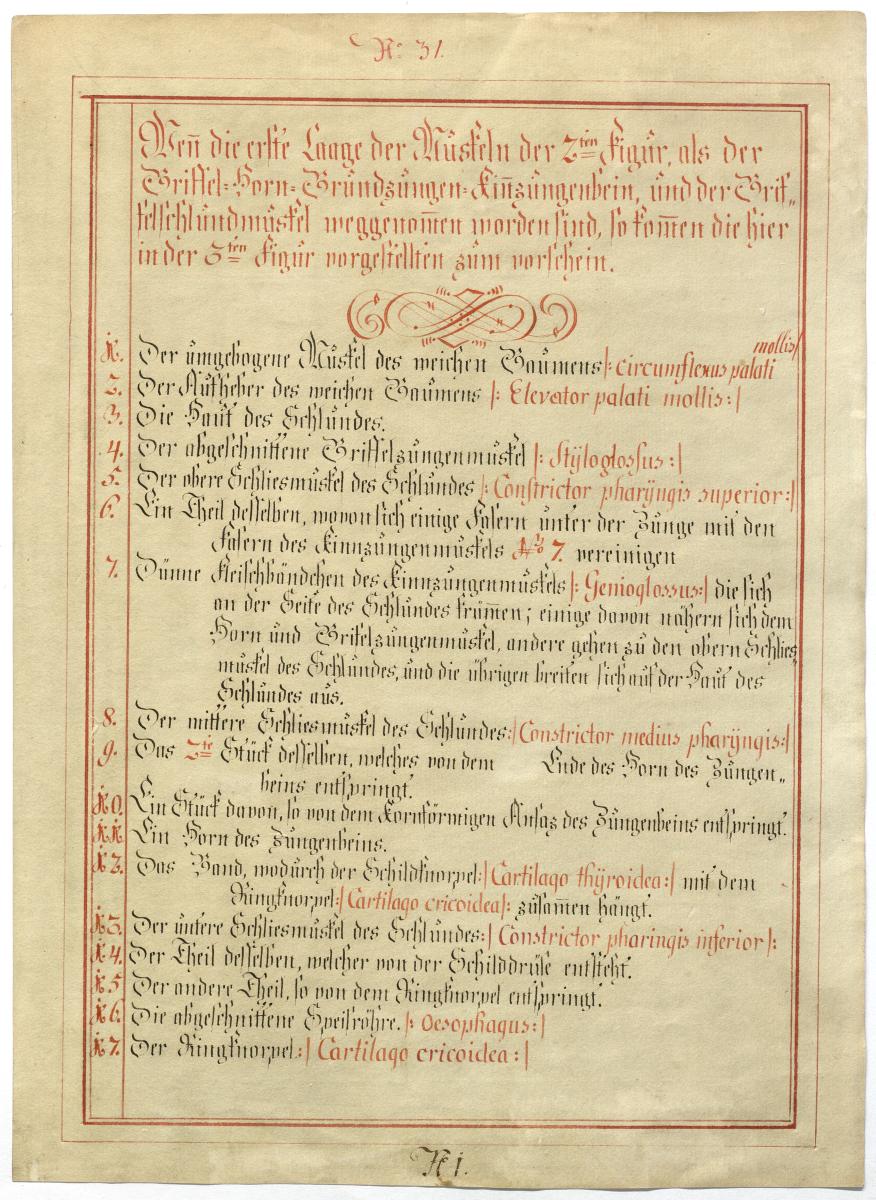 No. 31.
Wen̄ die erste Laage der Muskeln der 2ten Figur, als der
Griffel-Horn-Grundzungen-Kin̄zungenbein, und der Grif„
felschlundmuskel weggenom̄en worden sind, so kom̄en die hier
in der 3ten Figur vorgestellten zum vorschein.
mollis/
1. Der umgebogene Muskel des weichen Gaumens|: circumflexus palati
2. Der Aufheber des weichen Gaumens |: Elevator palati mollis:|
3. Die Haut des Schlundes.
4. Der abgeschnittene Griffelzungenmuskel |: Stÿloglossus:|
5. Der obere Schliesmuskel des Schlundes |: Constrictor pharÿngis superior:|
6. Ein Theil desselben, wovon sich einige Fasern unter der Zunge mit den
Fasern des Kinnzungenmuskels No 7. vereinigen
7. Dünne Fleischbändchen des Kinnzungenmuskels |: Genioglossus:| die sich
an der Seite des Schlundes krüm̄en; einige davon nähern sich dem
Horn und Grifelzungenmuskel, andere gehen zu den obern Schlies
muskel des Schlundes, und die übrigen breiten sich auf der Haut des
Schlundes aus.
8. Der mittere Schliesmuskel des Schlundes:| Constrictor medius pharÿngis:|
9. Das 2te Stück desselben, welches von dem Ende des Horn des Zungen„
beins entspringt.
10. Ein Stück davon, so von dem Kornförmigen Ansaz des Zungenbeins entspringt.
11. Ein Horn des Zungenbeins.
12. Das Band, wodurch der Schildknorpel:| Cartilago thÿroidea:| mit dem
Ringknorpel:| Cartilago cricoidea|: zusam̄en hängt.
13. Der untere Schliesmuskel des Schlundes:| Constrictor pharingis inferior|:
14. Der Theil desselben, welcher von der Schilddrüse entsteht.
15. Der andere Theil, so von dem Ringknorpel entspringt.
16. Die abgeschnittene Speisröhre. |: Oesophagus:|
17. Der Ringknorpel:| Cartilago cricoidea:|